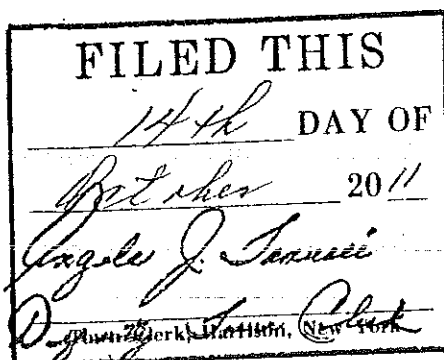 FILED THIS
14th DAY OF
October 2011
Angelo J.
Deputy Town Clerk
Town Clerk, Harrison, New York